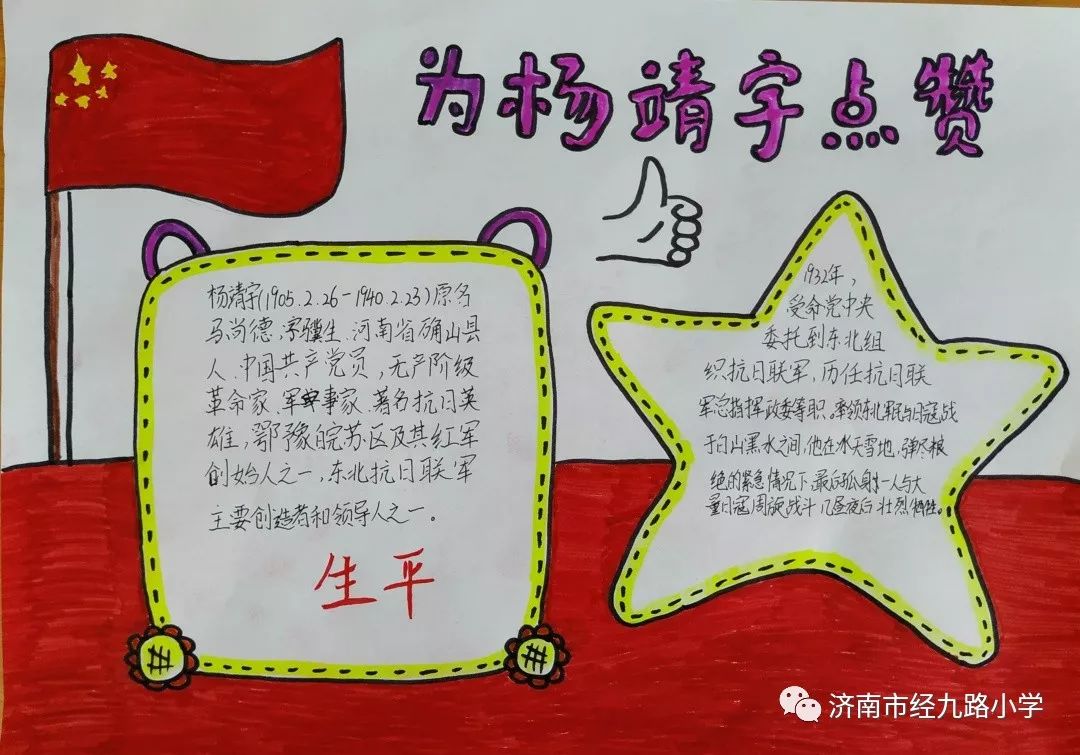 为杨靖字点赞
杨靖宇(1905.2.26-1940.2.23)原名
马尚德,字骥生、河南省确山县
人、中国共产党员,无产阶级
革命家、军事家、著名抗日英
雄,鄂豫皖苏区及其红军
创始人之一,东北抗日联军
主要创造者和领导人之一。
生平
1932年,
受命党中央
委托到东北组
织抗日联军,历任抗日联
军总指挥政委等职。率领东北军民与日寇战
于白山黑水之间,他在冰天雪地,弹尽粮
绝的紧急情况下,最后孤身一人与大
量日寇周旋战斗几昼夜后壮烈牺牲。
济南市经九路小学